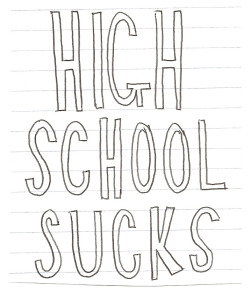 HIGH
SCHOOL
SUCKS